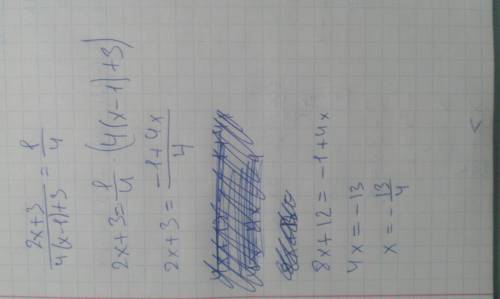 \frac{2x+3}{4(x-1)+3} = \frac{1}{4}
2x+3 = \frac{1}{4} · (4(x-1)+3)
2x+3 = \frac{-1+4x}{4}
8x+12 = -1+4x
4x = -13
x = -\frac{13}{4}